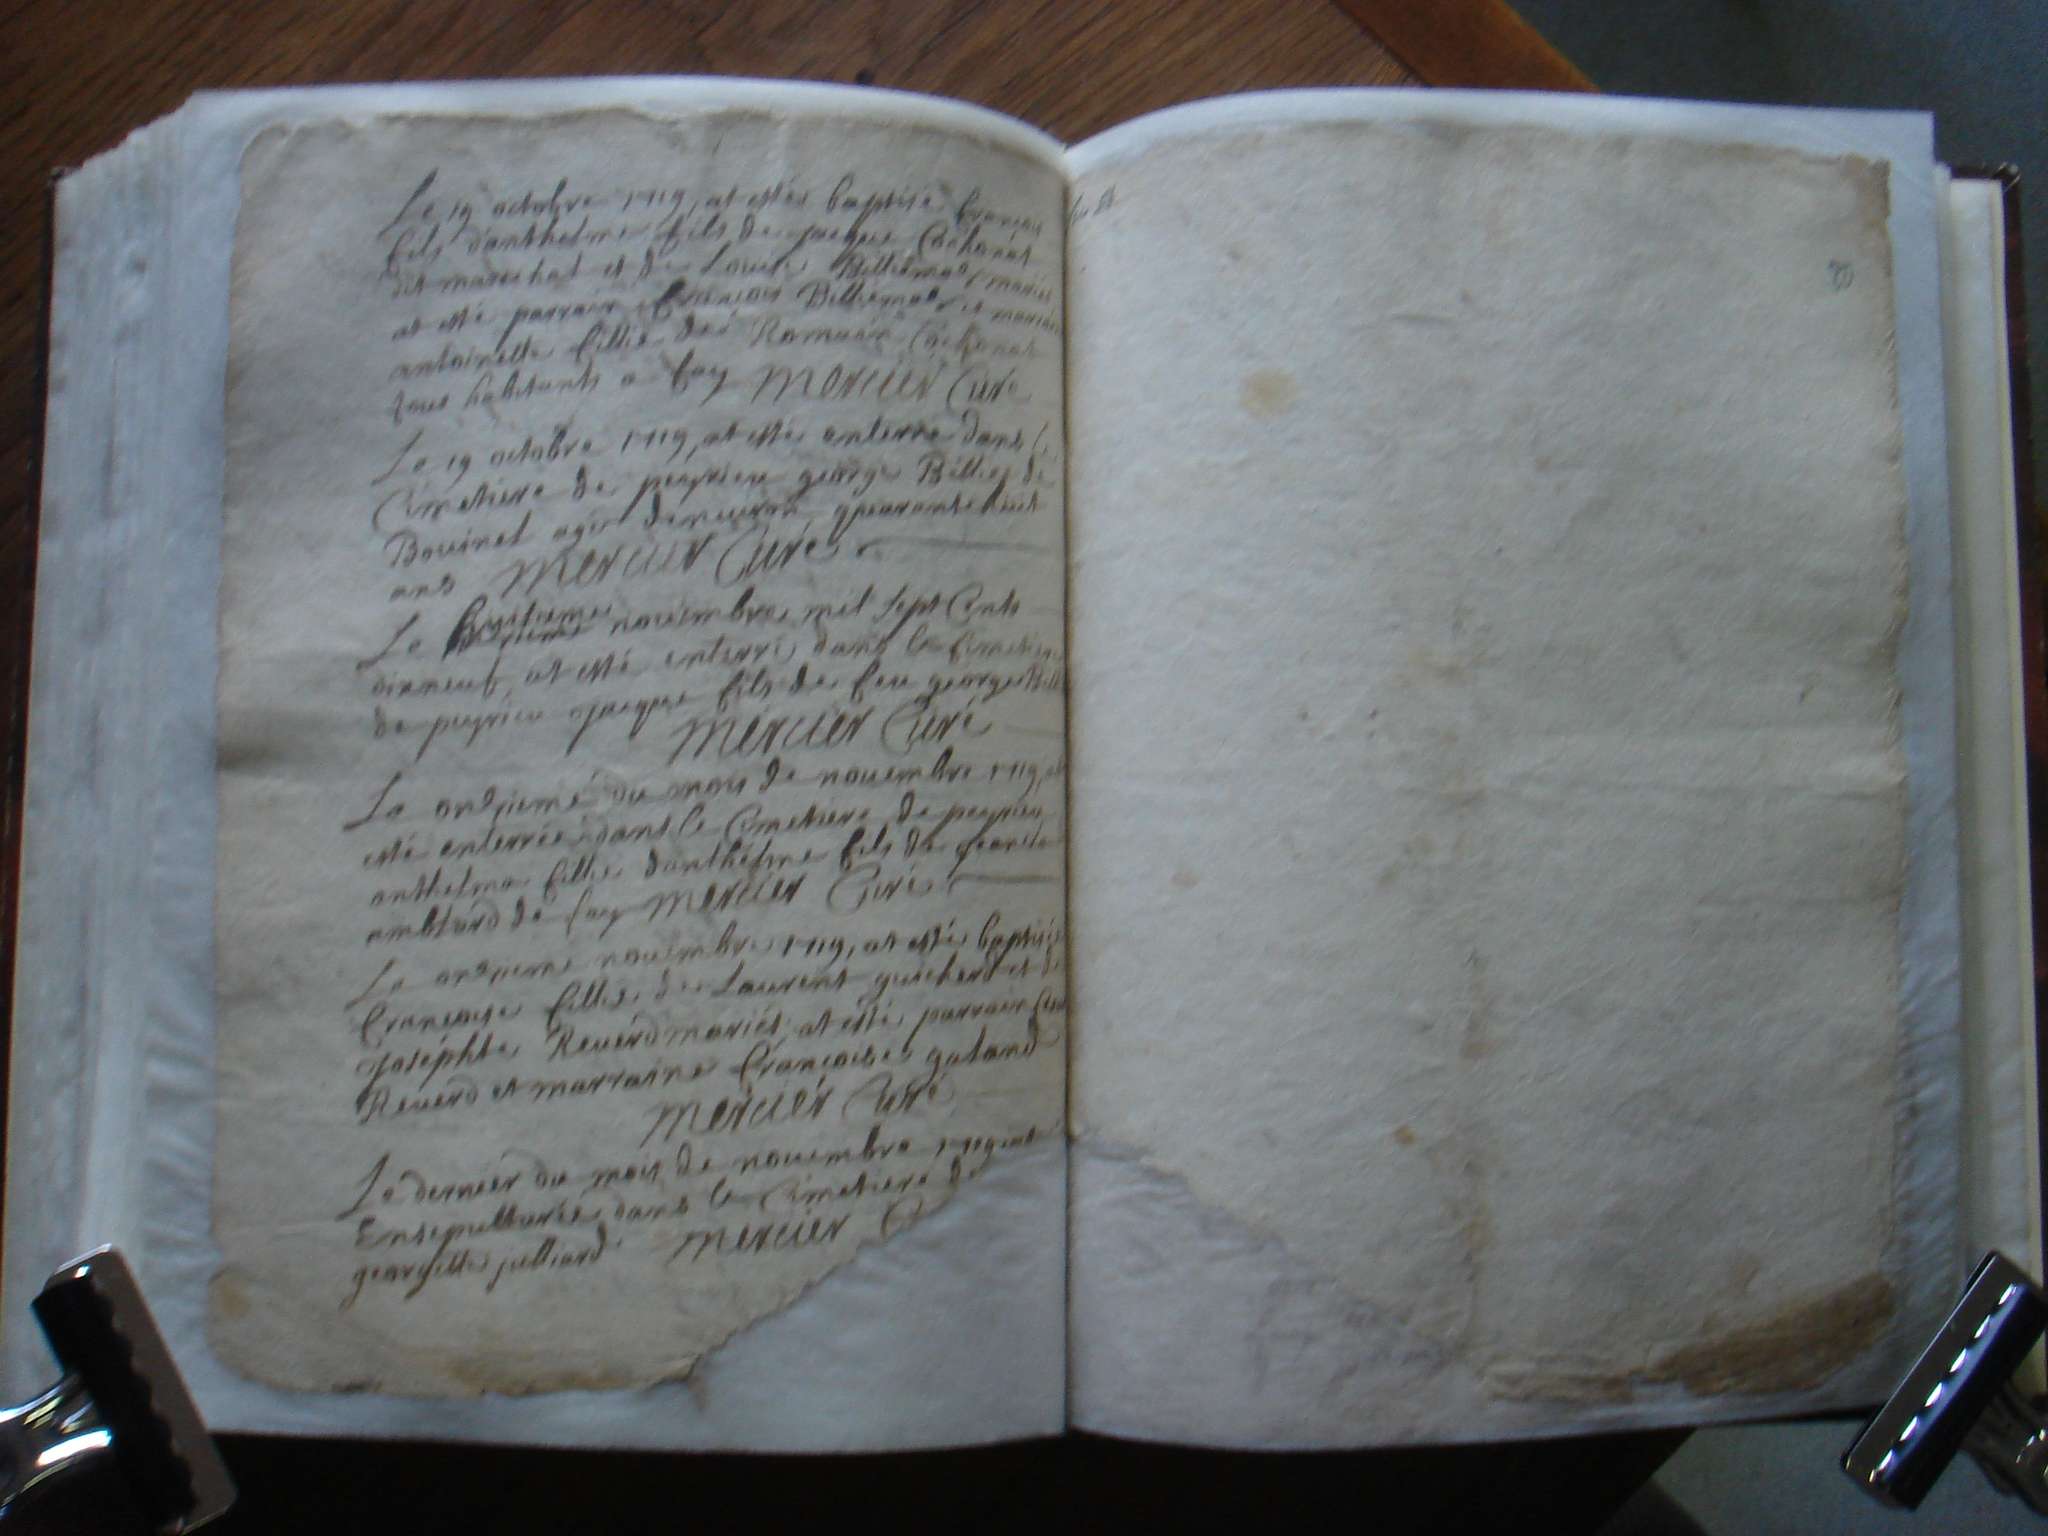 Le 19 octobre 1719, at estés baptisé françois
fils d'anthelme fils de jacque Cochonat
dit mareschal et de Louise Billiemas mariés
at esté parrain françois Billiemas et marraine
antoinette fillie de Romain Cochonat
tous habitants a fay Mercier Curé
Le 19 octobre 1719, at esté enterré dans le
Cimetiere de peyrieu george Billiez de
Bouinel agé denuiron quarante huit
ans Mercier Curé
Le huitieme nouembre mil sept Cents
dixneuf, at esté enterré dans le Cimetiere
de peyrieu jacque fils de feu george Bill
Mercier Curé
Le onzieme du mois de nouembre 1719, at
esté enterrée dans le Cimetiere de peyrieu
anthelma fillie d'anthelme fils de
amblard de fay Mercier Curé
Le onzieme nouembre 1719, at esté baptisée
françoise fillie de Laurent guicherd et de
josephte Reuerd mariés, at esté parrain
Reuerd et marraine françoise galand
Mercier Curé
Le dernier du mois de nouembre 1719 at
Ensepulturée dans le Cimetiere de
georgette julliard Mercier C